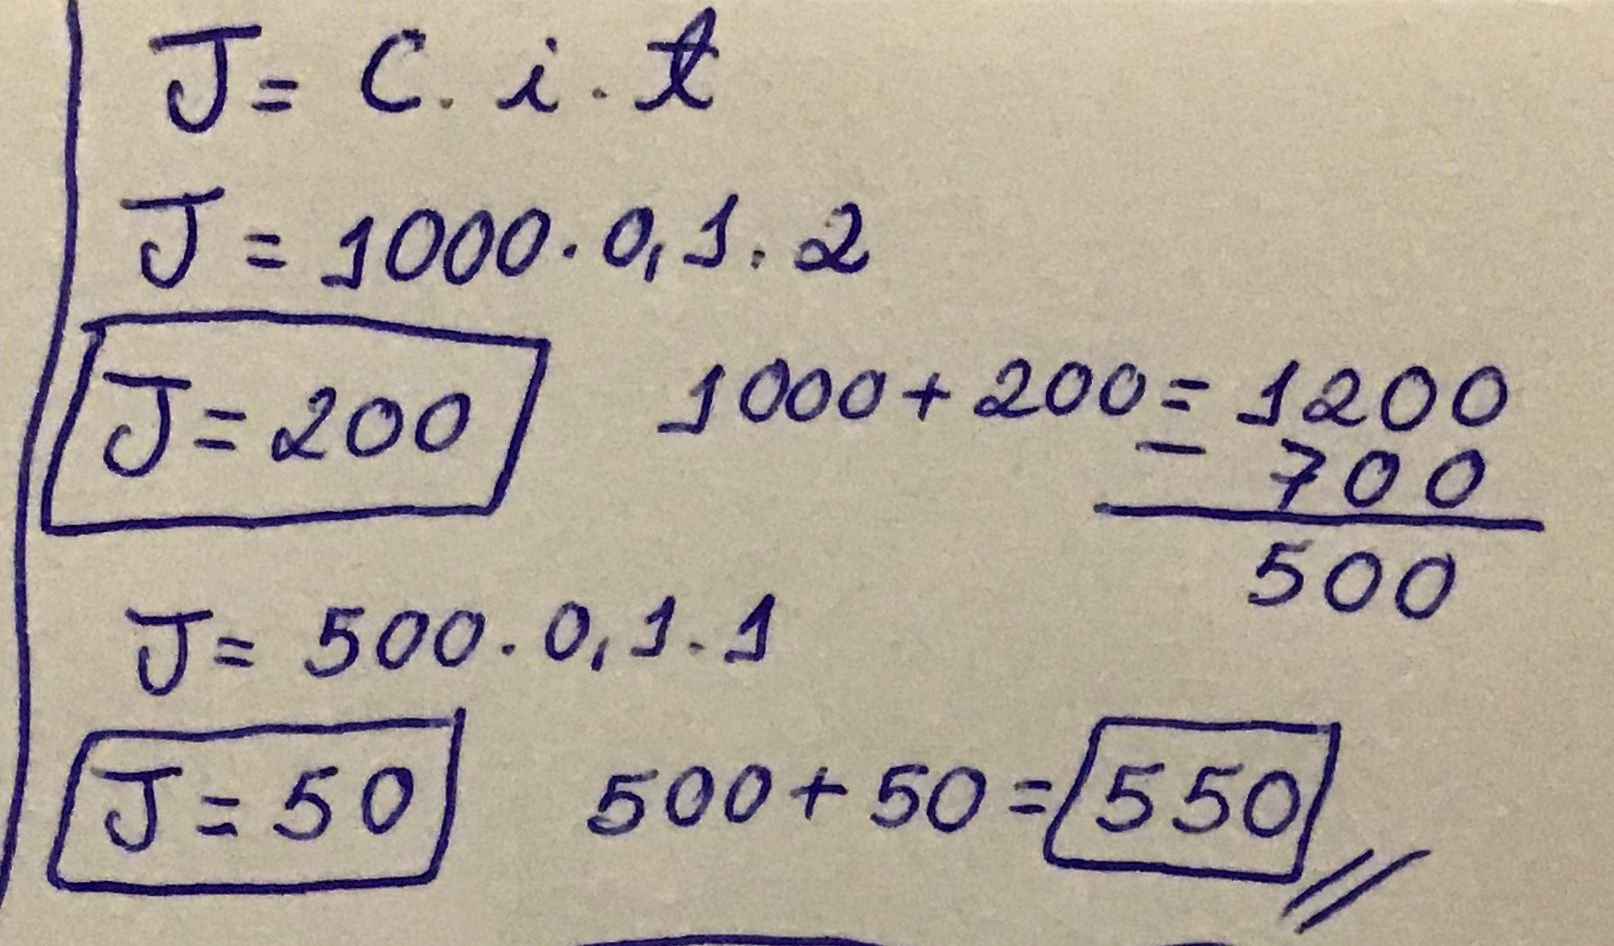 J = C . i . t
J = 1000 . 0,1 . 2
J = 200 1000 + 200 = 1200
- 700
500
J = 500 . 0,1 . 1
J = 50 500 + 50 = 550